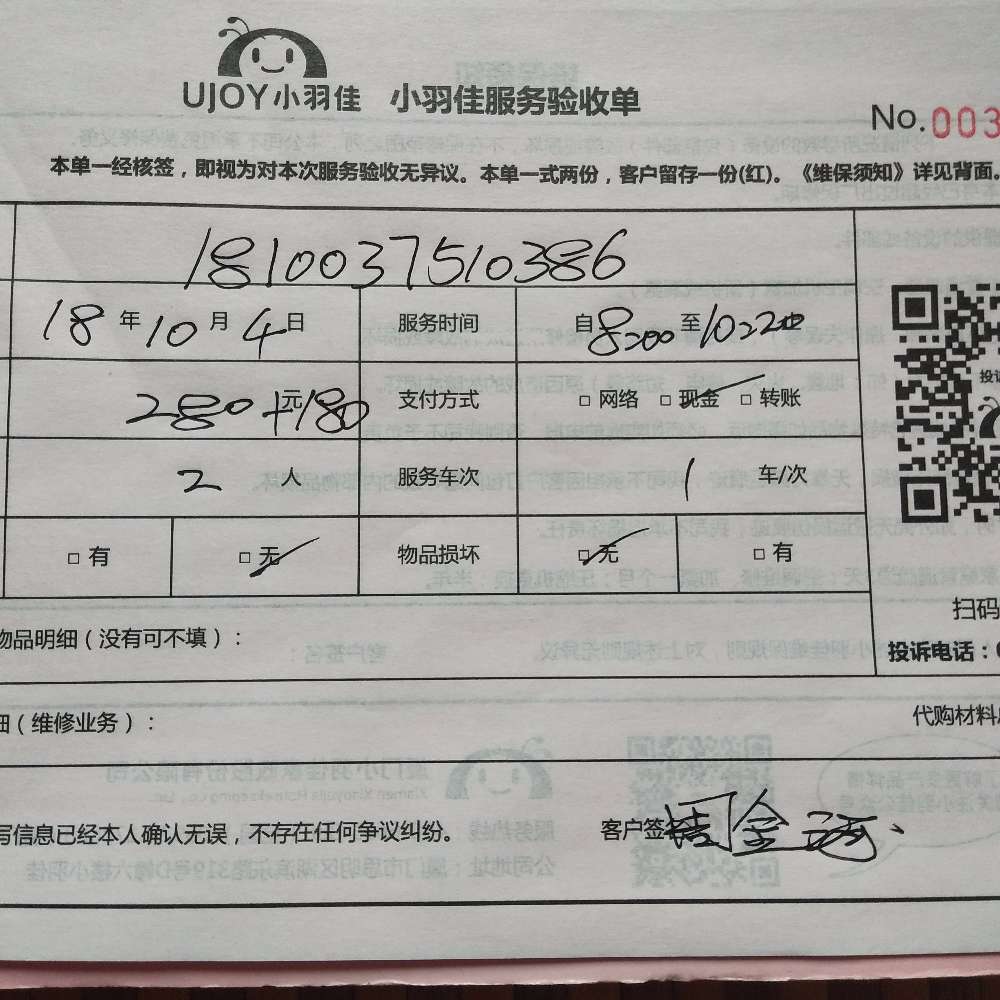 UJOY小羽佳 小羽佳服务验收单
No.003
本单一经核签，即视为对本次服务验收无异议。本单一式两份，客户留存一份(红)。《维保须知》详见背面。
181003751038​6
18年10月4日 服务时间 自8:00至10:20
280元+180 支付方式 □ 网络 □ 现金 □ 转账
2人 服务车次 1 车/次
□ 有 □ 无 物品损坏 □ 无 □ 有
扫码
物品明细（没有可不填）：
投诉电话：
细（维修业务）： 代购材料
写信息已经本人确认无误，不存在任何争议纠纷。 客户签名